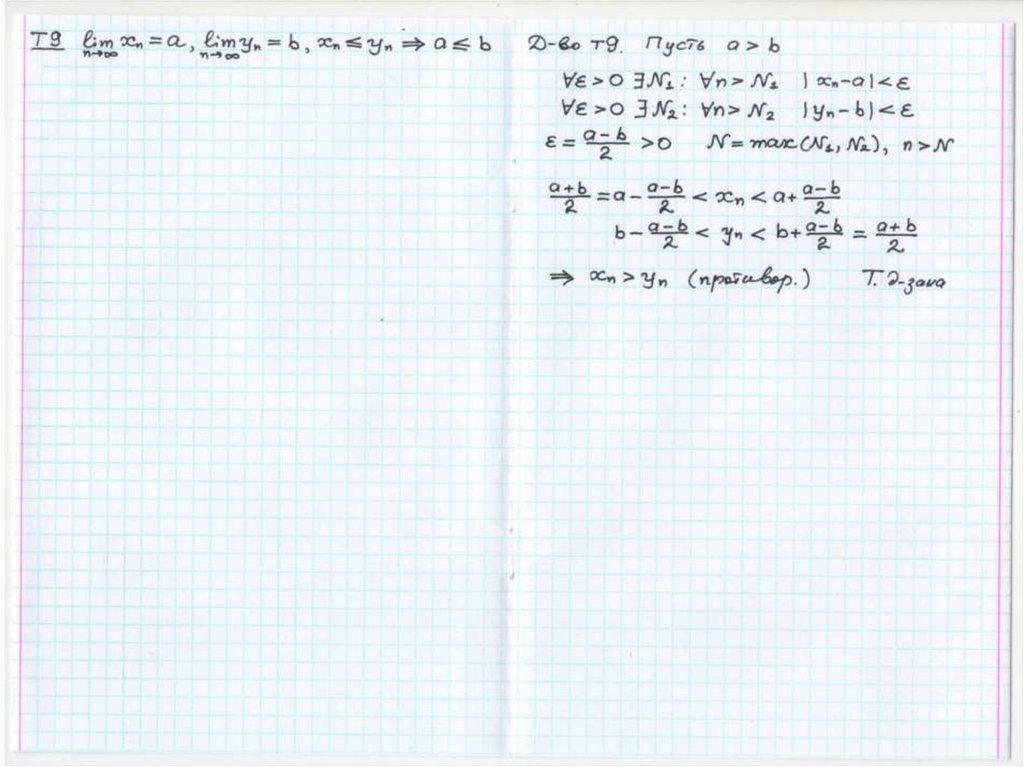 Т9 lim n→∞ xₙ = a, lim n→∞ yₙ = b, xₙ ≤ yₙ ⇒ a ≤ b
Д-во т9. Пусть a > b
∀ε > 0 ∃N₁: ∀n > N₁ |xₙ - a| < ε
∀ε > 0 ∃N₂: ∀n > N₂ |yₙ - b| < ε
ε = (a - b)/2 > 0 N = max(N₁, N₂), n > N
(a + b)/2 = a - (a - b)/2 < xₙ < a + (a - b)/2
b - (a - b)/2 < yₙ < b + (a - b)/2 = (a + b)/2
⇒ xₙ > yₙ (противор.) Т. д-зана